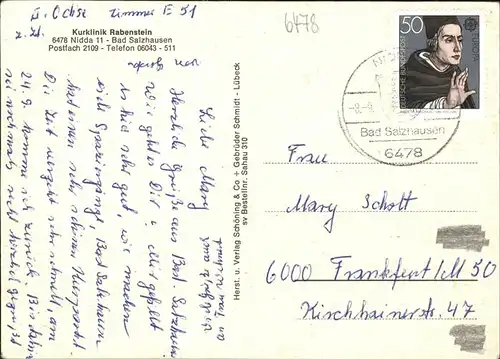 I. Ochse Zimmer E 51
z. Zt.
Kurklinik Rabenstein
6478 Nidda 11 - Bad Salzhausen
Postfach 2109 - Telefon 06043 - 511
6478
50
DEUTSCHE BUNDESPOST
EUROPA
Bad Salzhausen
6478
Liebe Mary
Herzliche Grüße aus Bad Salzhausen
Wie geht es Dir? Mir gefällt
es hier sehr gut, wir machen
viele Spaziergänge, Bad Salzhausen
hat einen sehr schönen Kurpark
Die Zeit vergeht sehr schnell, am
24.9. komme ich zurück. Bis dahin
sei nochmals recht herzlich gegrüßt
Herst. u. Verlag Schöning & Co + Gebrüder Schmidt - Lübeck
sv Bestellnr. Sahau 310
Frau
Mary Schott
6000 Frankfurt/M 50
Kirchhainerstr. 47